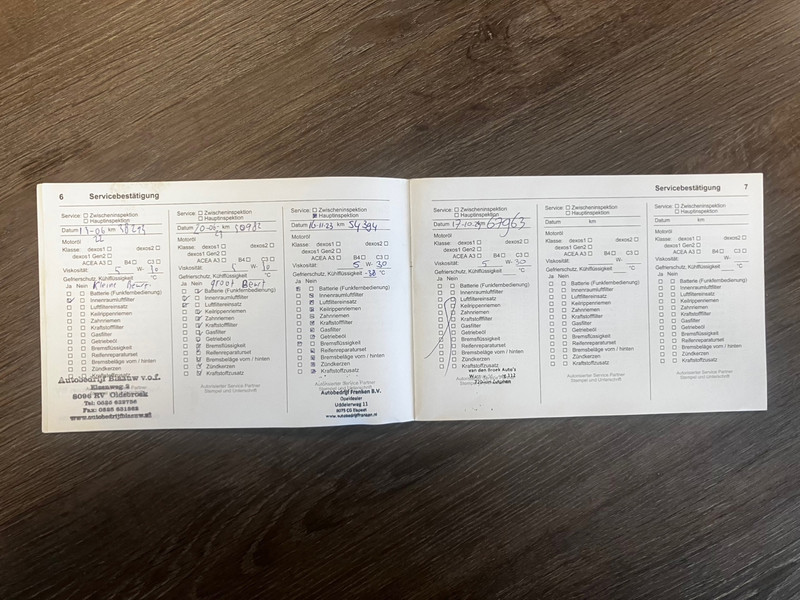 6 Servicebestätigung
Service: ☐ Zwischeninspektion
☐ Hauptinspektion
Datum 13-06 km
22
Motoröl
Klasse: dexos1 ☐ dexos2 ☐
dexos1 Gen2 ☐
ACEA A3 ☐ B4 ☐ C3 ☐
Viskosität: 5 W- 30
Gefrierschutz, Kühlflüssigkeit °C
Ja Nein Kleine Beurt
Batterie (Funkfernbedienung)
Innenraumluftfilter
Luftfiltereinsatz
Keilrippenriemen
Zahnriemen
Kraftstofffilter
Gasfilter
Getriebeöl
Bremsflüssigkeit
Reifenreparaturset
Bremsbeläge vorn / hinten
Zündkerzen
Kraftstoffzusatz
Autobedrijf Blaauw v.o.f.
8096 RV Oldebroek
www.autobedrijfblaauw.nl
Service: ☐ Zwischeninspektion
☐ Hauptinspektion
Datum 20-06- km
Motoröl
Klasse: dexos1 ☐ dexos2 ☐
dexos1 Gen2 ☐
ACEA A3 ☐ B4 ☐ C3 ☐
Viskosität: 5 W- 30
Gefrierschutz, Kühlflüssigkeit °C
Ja Nein groot Beurt
Batterie (Funkfernbedienung)
Innenraumluftfilter
Luftfiltereinsatz
Keilrippenriemen
Zahnriemen
Kraftstofffilter
Gasfilter
Getriebeöl
Bremsflüssigkeit
Reifenreparaturset
Bremsbeläge vorn / hinten
Zündkerzen
Kraftstoffzusatz
Autorisierter Service Partner
Stempel und Unterschrift
Service: ☐ Zwischeninspektion
☒ Hauptinspektion
Datum 16-11-23 km 54394
Motoröl
Klasse: dexos1 ☐ dexos2 ☐
dexos1 Gen2 ☐
ACEA A3 ☐ B4 ☐ C3 ☐
Viskosität: 5 W- 30
Gefrierschutz, Kühlflüssigkeit -38 °C
Ja Nein
Batterie (Funkfernbedienung)
Innenraumluftfilter
Luftfiltereinsatz
Keilrippenriemen
Zahnriemen
Kraftstofffilter
Gasfilter
Getriebeöl
Bremsflüssigkeit
Reifenreparaturset
Bremsbeläge vorn / hinten
Zündkerzen
Kraftstoffzusatz
Autorisierter Service Partner
Stempel und Unterschrift
Autobedrijf Franken B.V.
Opeldealer
Uddelerweg 11
8075 CG Elspeet
www.Autobedrijffranken.nl
Servicebestätigung 7
Service: ☐ Zwischeninspektion
☐ Hauptinspektion
Datum 17-10-24 67963
Motoröl
Klasse: dexos1 ☐ dexos2 ☐
dexos1 Gen2 ☐
ACEA A3 ☐ B4 ☐ C3 ☐
Viskosität: 5 W- 30
Gefrierschutz, Kühlflüssigkeit °C
Ja Nein
Batterie (Funkfernbedienung)
Innenraumluftfilter
Luftfiltereinsatz
Keilrippenriemen
Zahnriemen
Kraftstofffilter
Gasfilter
Getriebeöl
Bremsflüssigkeit
Reifenreparaturset
Bremsbeläge vorn / hinten
Zündkerzen
Kraftstoffzusatz
van den Brink Auto's
Service: ☐ Zwischeninspektion
☐ Hauptinspektion
Datum km
Motoröl
Klasse: dexos1 ☐ dexos2 ☐
dexos1 Gen2 ☐
ACEA A3 ☐ B4 ☐ C3 ☐
Viskosität: W-
Gefrierschutz, Kühlflüssigkeit °C
Ja Nein
Batterie (Funkfernbedienung)
Innenraumluftfilter
Luftfiltereinsatz
Keilrippenriemen
Zahnriemen
Kraftstofffilter
Gasfilter
Getriebeöl
Bremsflüssigkeit
Reifenreparaturset
Bremsbeläge vorn / hinten
Zündkerzen
Kraftstoffzusatz
Autorisierter Service Partner
Stempel und Unterschrift
Service: ☐ Zwischeninspektion
☐ Hauptinspektion
Datum km
Motoröl
Klasse: dexos1 ☐ dexos2 ☐
dexos1 Gen2 ☐
ACEA A3 ☐ B4 ☐ C3 ☐
Viskosität: W-
Gefrierschutz, Kühlflüssigkeit °C
Ja Nein
Batterie (Funkfernbedienung)
Innenraumluftfilter
Luftfiltereinsatz
Keilrippenriemen
Zahnriemen
Kraftstofffilter
Gasfilter
Getriebeöl
Bremsflüssigkeit
Reifenreparaturset
Bremsbeläge vorn / hinten
Zündkerzen
Kraftstoffzusatz
Autorisierter Service Partner
Stempel und Unterschrift